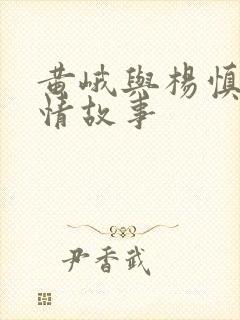 黄峨與楊慎
情故事
尹香武